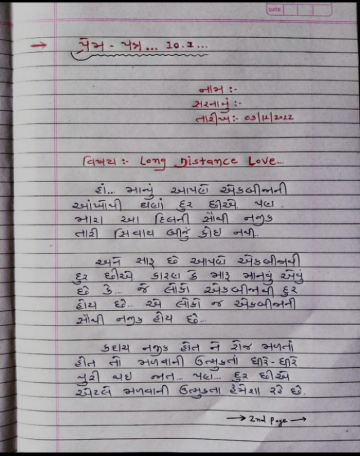 DATE
→ પ્રેમ - પત્ર... 10.2...
નામ :-
સરનામું :-
તારીખ:- ૦૩/૧૨/૨૦૨૨
વિષય :- Long Distance Love..
હાં... માન્યું આપણે એકબીજાની
આંખોથી ઘણાં દુર છીએ પણ
મારા આ દિલની સૌથી નજીક
તારી સિવાય બીજું કોઈ નથી.
અને સારૂ છે આપણે એકબીજાથી
દુર છીએ કારણ કે મારૂ માનવું એવું
છે કે.. જે લોકો એકબીજાથી દુર
હોય છે.. એ લોકો જ એકબીજાની
સૌથી નજીક હોય છે..
કદાચ નજીક હોત ને રોજ મળતાં
હોત તો મળવાની ઉત્સુકતા ધીરે-ધીરે
પુરી થઇ જાત... પણ... દુર છીએ
એટલે મળવાની ઉત્સુકતા હંમેશા રહે છે.
→ 2nd Page →